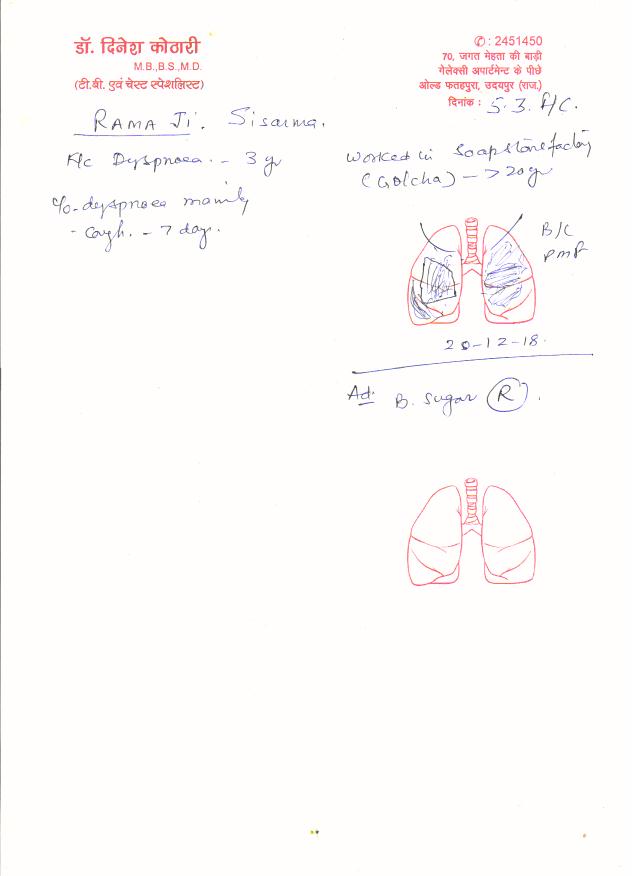 डॉ. दिनेश कोठारी
M.B.,B.S.,M.D.
(टी.बी. एवं चेस्ट स्पेशलिस्ट)
✆ : 2451450
70, जगत मेहता की बाड़ी
गेलेक्सी अपार्टमेन्ट के पीछे
ओल्ड फतहपुरा, उदयपुर (राज.)
दिनांक : 5.3.
RAMA Ji. Sisarma.
K/c Dyspnoea. - 3 yr
c/o - dyspnoea mainly
- Cough. - 7 day.
worked in Soapstone factory
(Golcha) - > 20 yr
B/L
PMF
20-12-18.
Ad. B. Sugar (R).